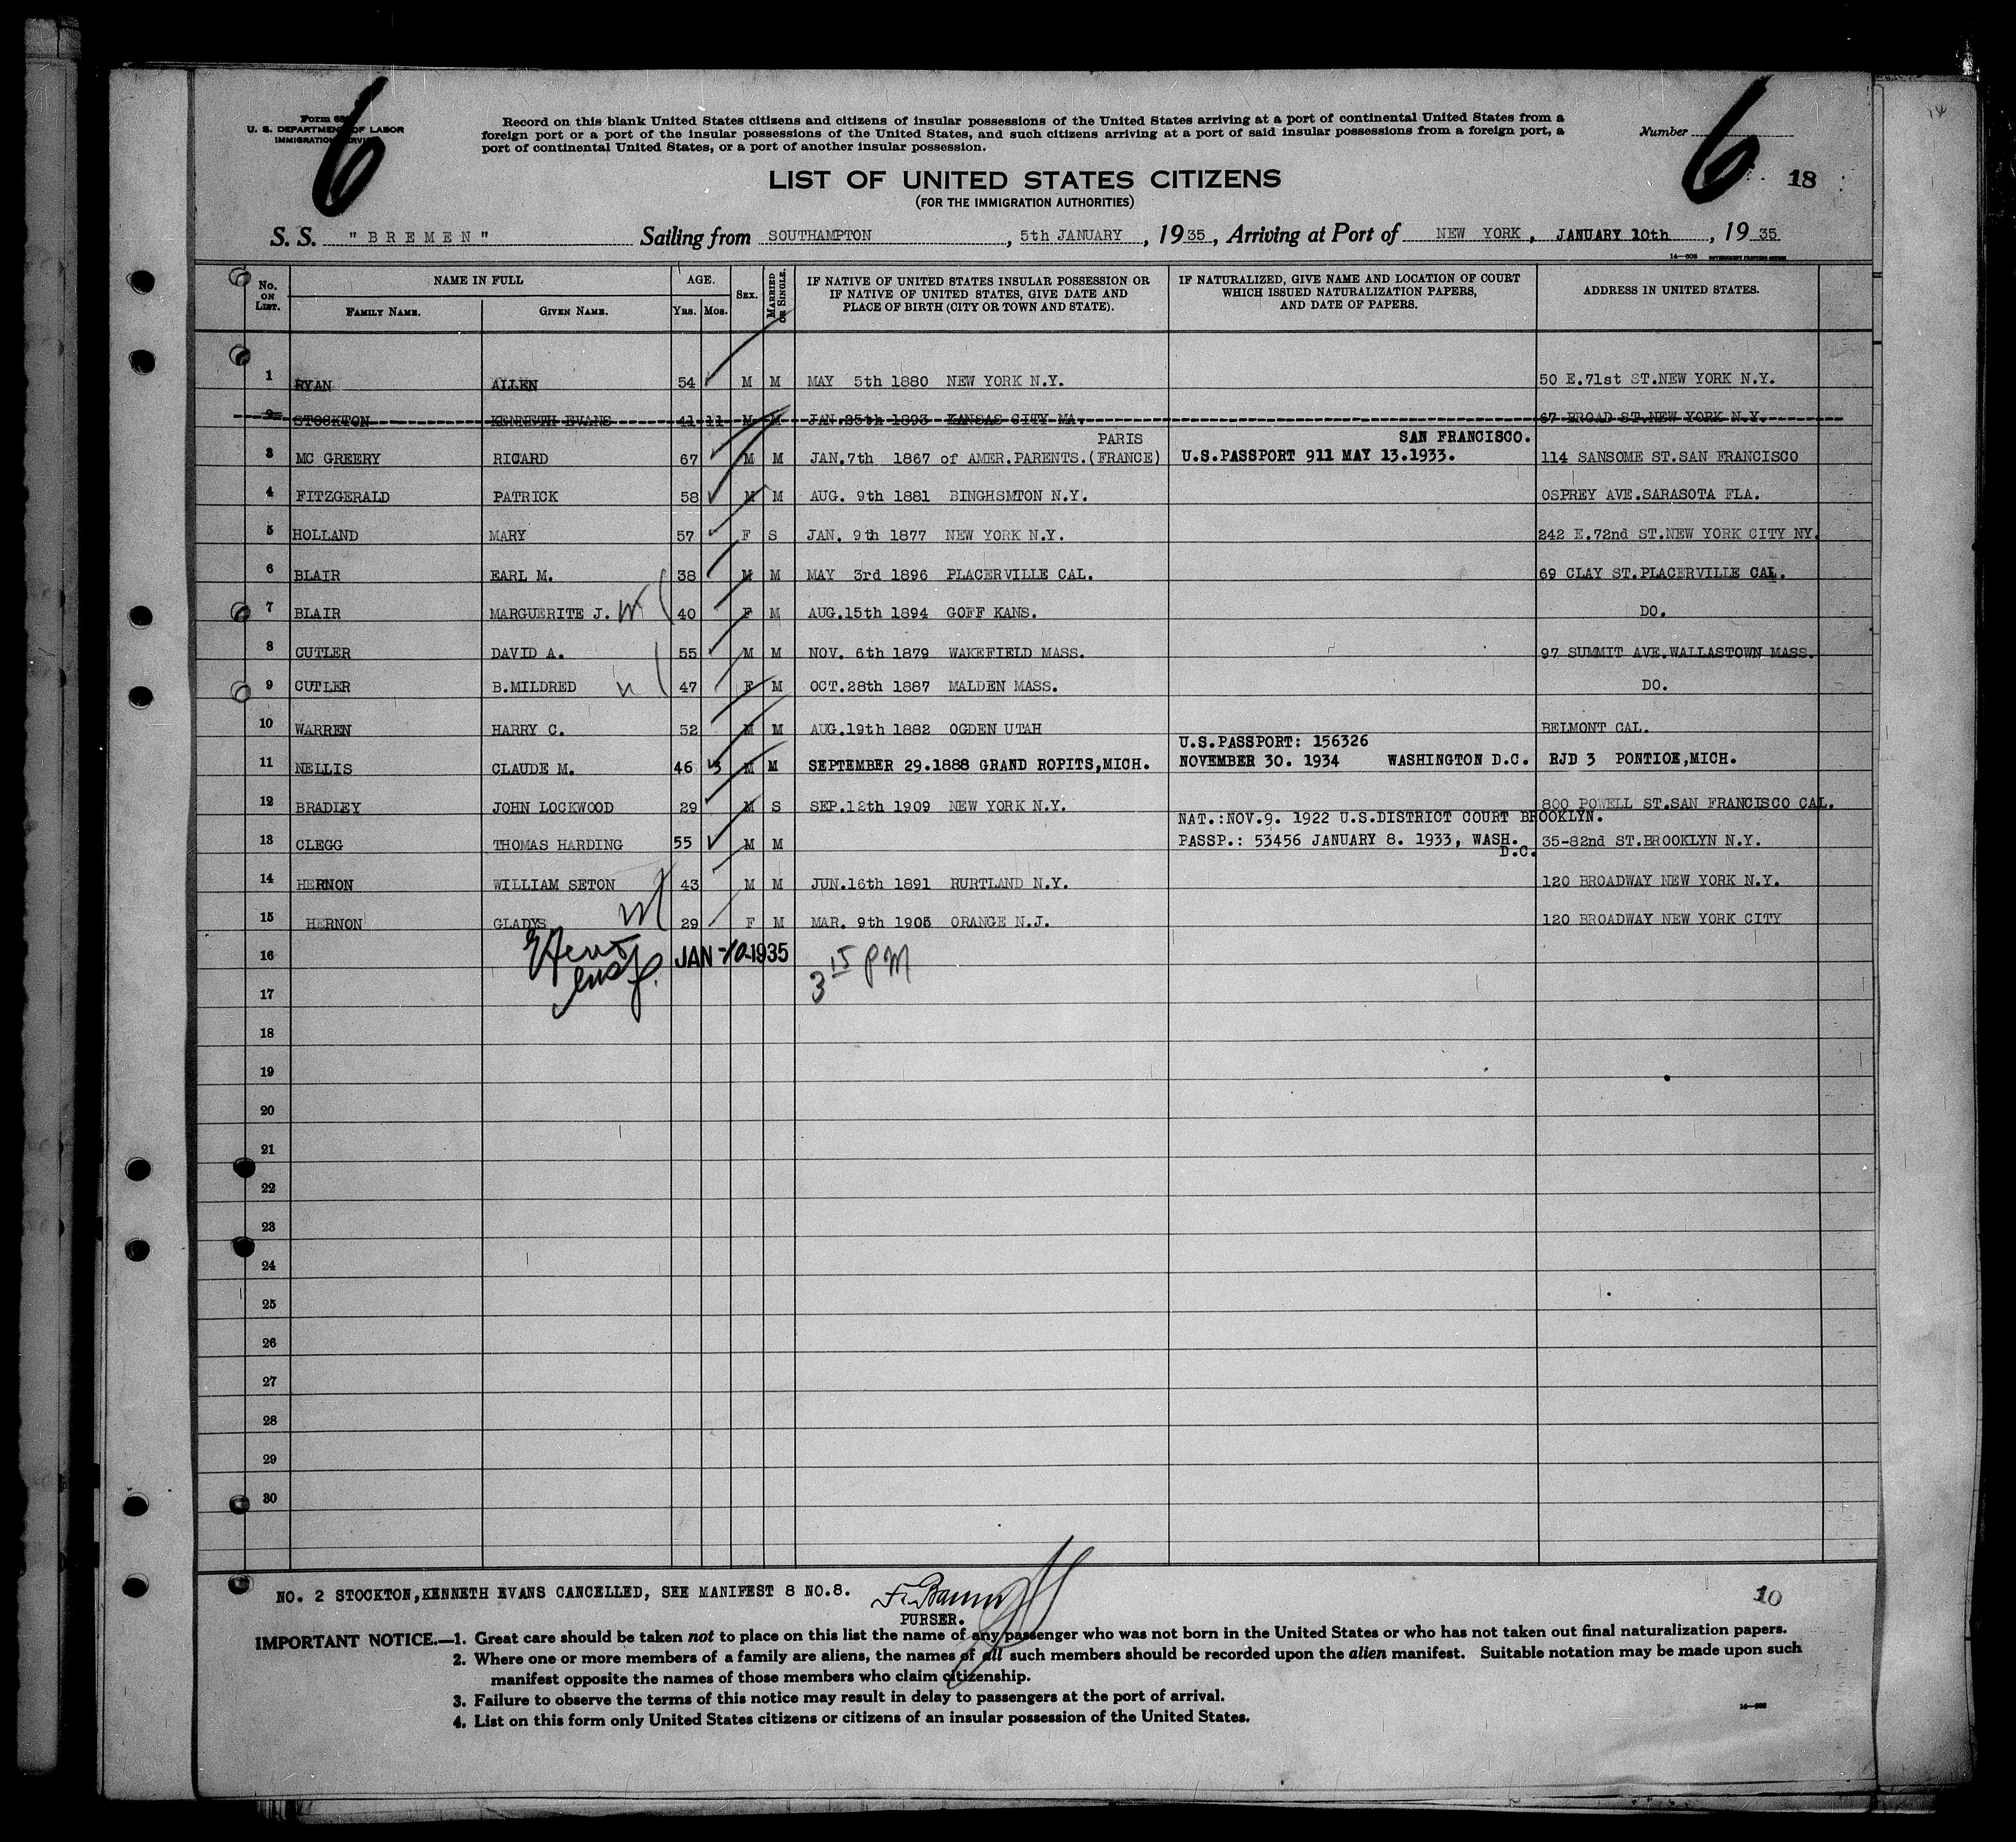 6
6
Form 63
U. S. DEPARTMENT OF LABOR
IMMIGRATION SERVICE
Record on this blank United States citizens and citizens of insular possessions of the United States arriving at a port of continental United States from a
foreign port or a port of the insular possessions of the United States, and such citizens arriving at a port of said insular possessions from a foreign port, a
port of continental United States, or a port of another insular possession.
Number
18
LIST OF UNITED STATES CITIZENS
(FOR THE IMMIGRATION AUTHORITIES)
S. S. "BREMEN" Sailing from SOUTHAMPTON, 5th JANUARY, 1935, Arriving at Port of NEW YORK, JANUARY 10th, 1935
14—608 GOVERNMENT PRINTING OFFICE
No. ON LIST. NAME IN FULL FAMILY NAME. GIVEN NAME. AGE. YRS. MOS. SEX. MARRIED OR SINGLE. IF NATIVE OF UNITED STATES INSULAR POSSESSION OR IF NATIVE OF UNITED STATES, GIVE DATE AND PLACE OF BIRTH (CITY OR TOWN AND STATE). IF NATURALIZED, GIVE NAME AND LOCATION OF COURT WHICH ISSUED NATURALIZATION PAPERS, AND DATE OF PAPERS. ADDRESS IN UNITED STATES.
1 RYAN ALLEN 54 M M MAY 5th 1880 NEW YORK N.Y. 50 E.71st ST.NEW YORK N.Y.
2 STOCKTON KENNETH EVANS 41 11 M M JAN.25th 1893 KANSAS CITY MA. 67 BROAD ST.NEW YORK N.Y.
PARIS SAN FRANCISCO.
3 MC GREERY RICARD 67 M M JAN.7th 1867 of AMER.PARENTS.(FRANCE) U.S.PASSPORT 911 MAY 13.1933. 114 SANSOME ST.SAN FRANCISCO
4 FITZGERALD PATRICK 58 M M AUG. 9th 1881 BINGHSMTON N.Y. OSPREY AVE.SARASOTA FLA.
5 HOLLAND MARY 57 F S JAN. 9th 1877 NEW YORK N.Y. 242 E.72nd ST.NEW YORK CITY NY.
6 BLAIR EARL M. 38 M M MAY 3rd 1896 PLACERVILLE CAL. 69 CLAY ST.PLACERVILLE CAL.
7 BLAIR MARGUERITE J. W 40 F M AUG.15th 1894 GOFF KANS. DO.
8 CUTLER DAVID A. 55 M M NOV. 6th 1879 WAKEFIELD MASS. 97 SUMMIT AVE.WALLASTOWN MASS.
9 CUTLER B.MILDRED W 47 F M OCT.28th 1887 MALDEN MASS. DO.
10 WARREN HARRY C. 52 M M AUG.19th 1882 OGDEN UTAH BELMONT CAL.
U.S.PASSPORT: 156326
11 NELLIS CLAUDE M. 46 3 M M SEPTEMBER 29.1888 GRAND ROPITS,MICH. NOVEMBER 30. 1934 WASHINGTON D.C. RJD 3 PONTIOE,MICH.
12 BRADLEY JOHN LOCKWOOD 29 M S SEP.12th 1909 NEW YORK N.Y. 800 POWELL ST.SAN FRANCISCO CAL.
NAT.:NOV.9. 1922 U.S.DISTRICT COURT BROOKLYN.
13 CLEGG THOMAS HARDING 55 M M PASSP.: 53456 JANUARY 8. 1933, WASH. 35-82nd ST.BROOKLYN N.Y.
D.C.
14 HERNON WILLIAM SETON 43 M M JUN.16th 1891 RURTLAND N.Y. 120 BROADWAY NEW YORK N.Y.
15 HERNON GLADYS W 29 F M MAR. 9th 1905 ORANGE N.J. 120 BROADWAY NEW YORK CITY
16 JAN -10-1935 3 15 PM
17
18
19
20
21
22
23
24
25
26
27
28
29
30
NO. 2 STOCKTON,KENNETH EVANS CANCELLED, SEE MANIFEST 8 NO.8.
PURSER.
10
IMPORTANT NOTICE.—1. Great care should be taken not to place on this list the name of any passenger who was not born in the United States or who has not taken out final naturalization papers.
2. Where one or more members of a family are aliens, the names of all such members should be recorded upon the alien manifest. Suitable notation may be made upon such
manifest opposite the names of those members who claim citizenship.
3. Failure to observe the terms of this notice may result in delay to passengers at the port of arrival.
4. List on this form only United States citizens or citizens of an insular possession of the United States.
14—608